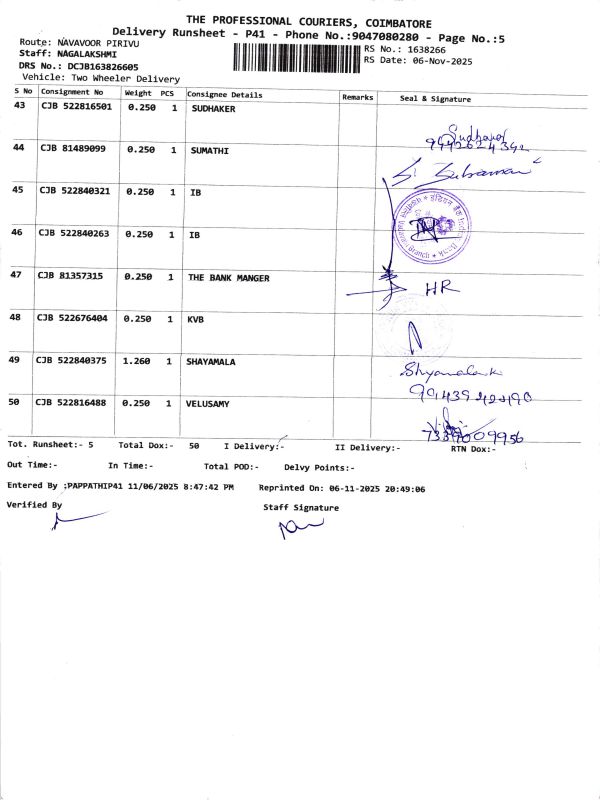 THE PROFESSIONAL COURIERS, COIMBATORE
Delivery Runsheet - P41 - Phone No.:9047080280 - Page No.:5
Route: NAVAVOOR PIRIVU
RS No.: 1638266
Staff: NAGALAKSHMI
RS Date: 06-Nov-2025
DRS No.: DCJB163826605
Vehicle: Two Wheeler Delivery
S No Consignment No Weight PCS Consignee Details Remarks Seal & Signature
43 CJB 522816501 0.250 1 SUDHAKER
44 CJB 81489099 0.250 1 SUMATHI
45 CJB 522840321 0.250 1 IB
46 CJB 522840263 0.250 1 IB
47 CJB 81357315 0.250 1 THE BANK MANGER
HR
48 CJB 522676404 0.250 1 KVB
49 CJB 522840375 1.260 1 SHAYAMALA
50 CJB 522816488 0.250 1 VELUSAMY
7339009956
Tot. Runsheet:- 5 Total Dox:- 50 I Delivery:- II Delivery:- RTN Dox:-
Out Time:- In Time:- Total POD:- Delvy Points:-
Entered By :PAPPATHIP41 11/06/2025 8:47:42 PM Reprinted On: 06-11-2025 20:49:06
Verified By Staff Signature